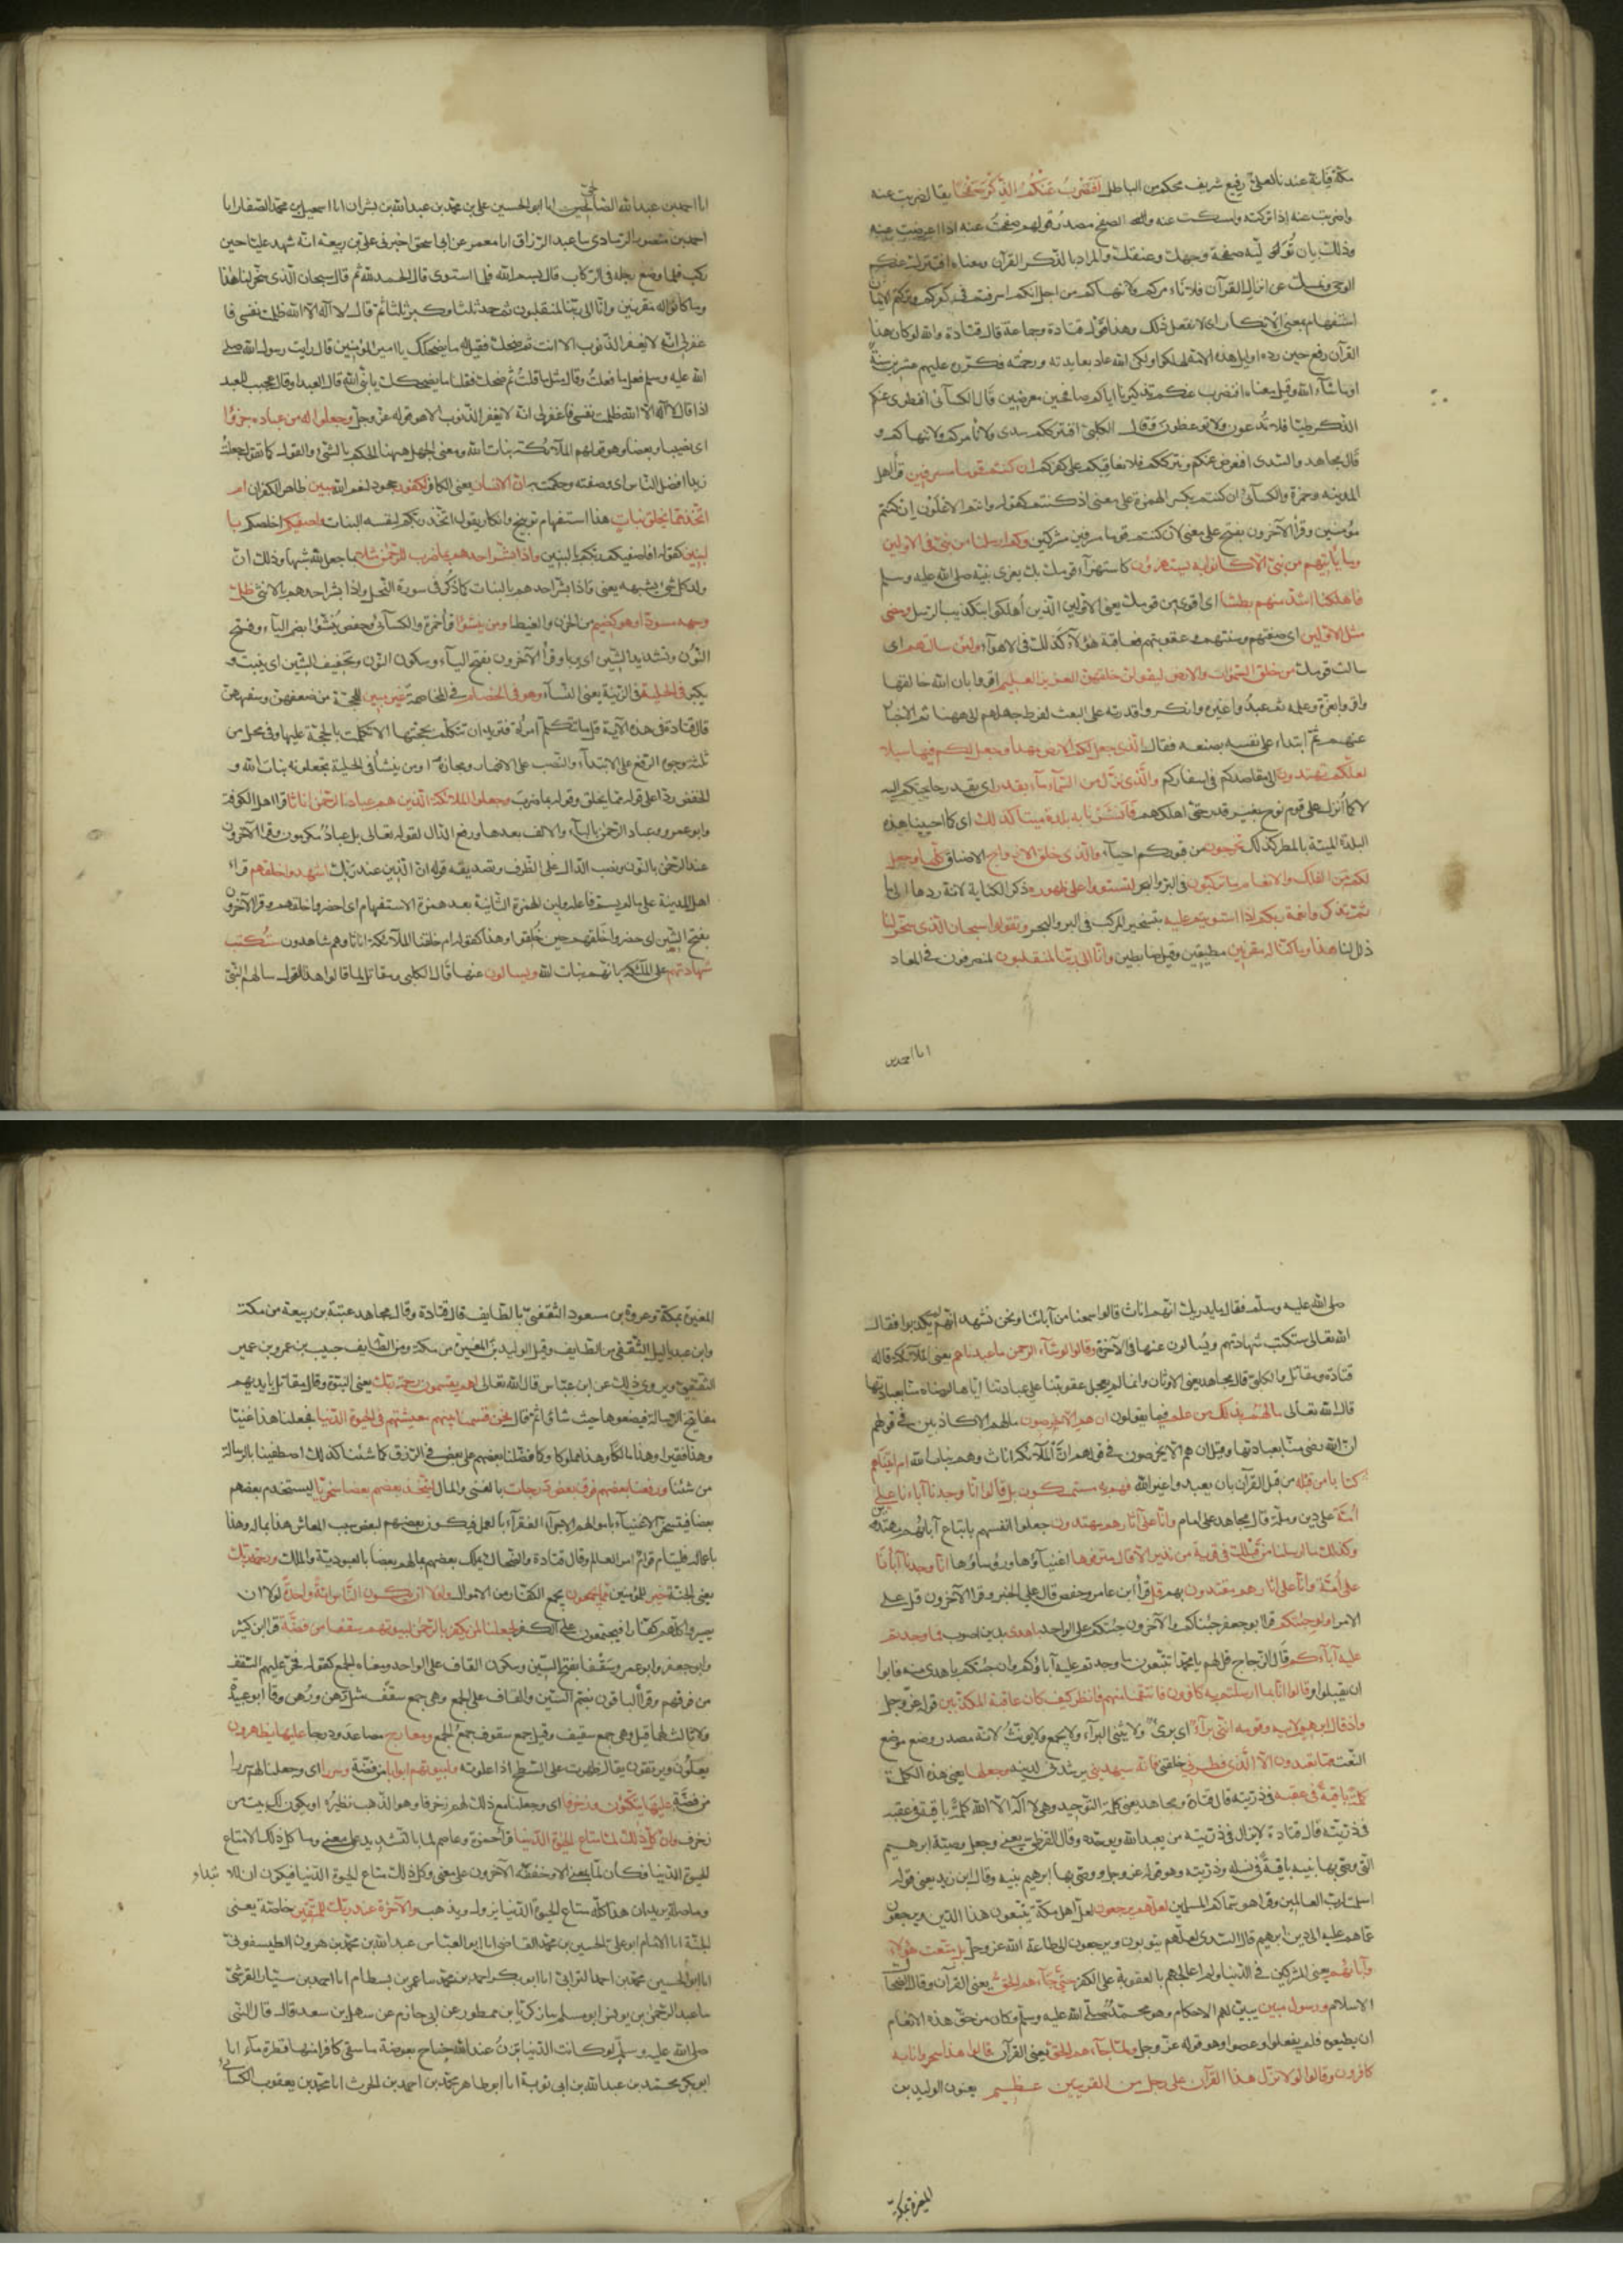 مكة فإنه عندنا لعلي رفيع شريف محكم من الباطل أفنضرب عنكم الذكر صفحا يقال ضربت عنه
واضربت عنه إذا تركته وامسكت عنه والصفح مصدر قولهم صفحت عنه اذا اعرضت عنه
وذلك بان توليه صفحة وجهك وعنقك والمراد بالذكر القرآن ومعناه افنترك عنكم
الوحي ونمسك عن انزال القرآن فلا نأمركم ولا ننهاكم من اجل انكم اسرفتم في كفركم وتركتم الايمان
استفهام بمعنى الانكار اى لا نفعل ذلك وهذا قول قتادة وجماعة قال قتادة والله لو كان هذا
القرآن رفع حين رده اوايل هذه الامة لهلكوا ولكن الله عاد بعايدته ورحمته فكرره عليهم عشرين سنة
او ما شآء الله وقيل معناه افنضرب عنكم بتذكيرنا اياكم صافحين معرضين قال الكسائى افنطوى عنكم
الذكر طيا فلا تدعون ولا توعظون وقال الكلبى افنترككم سدى ولا نأمركم ولا ننهاكم و
قال مجاهد والسدى افنعرض عنكم ونترككم فلا نعاقبكم على كفركم ان كنتم قوما مسرفين قرأ اهل
المدينه وحمزة والكسائى ان كنتم بكسر الهمزة على معنى اذ كنتم كقوله وانتم الاعلون ان كنتم
مؤمنين وقرأ الآخرون بفتح على معنى لان كنتم قوما مسرفين مشركين وكم ارسلنا من نبى فى الاولين
وما يأتيهم من نبى الا كانوا به يستهزؤن كاستهزآء قومك بك يعزى نبيه صلى الله عليه وسلم
فاهلكنا اشد منهم بطشا اى اقوى من قومك يعنى الاولين الذين اهلكوا بتكذيب الرسل ومضى
مثل الاولين اى صفتهم وسنتهم وعقوبتهم فعاقبة هؤلآء كذلك فى الاهلاك ولئن سالتهم اى
سالت قومك من خلق السموات والارض ليقولن خلقهن العزيز العليم اقروا بان الله خالقها
واقروا بعزه وعلمه ثم عبدوا غيره وانكروا قدرته على البعث لفرط جهلهم الى ههنا تم الاخبار
عنهم ثم ابتداء على نفسه بصنعه فقال الذى جعل لكم الارض مهدا وجعل لكم فيها سبلا
لعلكم تهتدون الى مقاصدكم فى اسفاركم والذى نزل من السمآء مآء بقدر اى بقدر حاجتكم اليه
لا كما أنزل على قوم نوح بغير قدر حتى اهلكهم فانشرنا به بلدة ميتا كذلك اى كما احيينا هذه
البلدة الميتة بالمطر كذلك تخرجون من قبوركم احيآء والذى خلق الازواج الاصناف كلها وجعل
لكم من الفلك والانعام ما تركبون فى البر والبحر لتستووا على ظهوره ذكر الكناية لانه ردها الى ما
ثم تذكروا نعمة ربكم اذا استويتم عليه بتسخير المركب فى البر والبحر وتقولوا سبحان الذى سخر لنا
ذلل لنا هذا وما كنا له مقرنين مطيقين وقيل ضابطين وانا الى ربنا لمنقلبون لمنصرفون فى المعاد
انا احمد بن
انا احمد بن عبد الله الصالحى انا ابو الحسين على بن محمد بن عبد الله بن بشران انا اسمعيل بن محمد الصفار انا
احمد بن منصور الرمادى ما عبد الرزاق انا معمر عن ابى اسحق اخبرنى على بن ربيعة انه شهد عليا حين
ركب فلما وضع رجله فى الركاب قال بسم الله فلما استوى قال الحمد لله ثم قال سبحان الذى سخر لنا هذا
وما كنا له مقرنين وانا الى ربنا لمنقلبون ثم حمد ثلثا وكبر ثلثا ثم قال لا اله الا الله ظلمت نفسى فا
غفر لى انه لا يغفر الذنوب الا انت ثم ضحك فقيل له ما يضحكك يا امير المؤمنين قال رايت رسول الله صلى
الله عليه وسلم فعل ما فعلت وقال مثل ما قلت ثم ضحك فقلنا ما يضحكك يا نبى الله قال العبد او قال عجب للعبد
اذا قال لا اله الا الله ظلمت نفسى فاغفر لى انه لا يغفر الذنوب الا هو قوله عز وجل وجعلوا له من عباده جزؤا
اى نصيبا وبعضا وهو قولهم الملآئكة بنات الله ومعنى الجعل ههنا الحكم بالشئ والقول كما تقول جعلت
زيدا افضل الناس اى وصفته وحكمت به ان الانسان يعنى الكافر لكفور جحود لنعم الله مبين ظاهر الكفران ام
اتخذ مما يخلق بنات هذا استفهام توبيخ وانكار يقول اتخذ ربكم لنفسه البنات واصفيكم اخلصكم با
لبنين كقوله افاصفيكم ربكم بالبنين واذا بشر احدهم بما ضرب للرحمن مثلا بما جعل لله شبها وذلك ان
ولد كل شئ يشبهه يعنى واذا بشر احدهم بالبنات كما ذكر فى سورة النحل واذا بشر احدهم بالانثى ظل
وجهه مسودا وهو كظيم من الحزن والغيظ او من ينشؤا قرأ حمزة والكسآئى وحفص ينشؤا بضم اليآء وفتح
النون وتشديد الشين اى يربا وقرأ الآخرون بفتح اليآء وسكون النون وتخفيف الشين اى ينبت و
يكبر فى الحلية فى الزينة يعنى النسآء وهو فى الخصام فى المخاصمة غير مبين للحجة من ضعفهن وسفههن
قال قتادة فى هذه الآية قل ما تتكلم امرأة فتريد ان تتكلم بحجتها الا تكلمت بالحجة عليها وفى محل من
ثلثة وجوه الرفع على الابتدآء والنصب على الاضمار ومجازه او من ينشأ فى الحلية يجعلونه بنات الله و
الخفض ردا على قوله مما يخلق وقوله بما ضرب وجعلوا الملآئكة الذين هم عباد الرحمن اناثا قرأ اهل الكوفة
وابو عمرو وعباد الرحمن بالبآء والالف بعدها ورفع الدال لقوله تعالى بل عباد مكرمون وقرأ الآخرون
عند الرحمن بالنون ونصب الدال على الظرف وتصديقه قوله ان الذين عند ربك اشهدوا خلقهم قرأ
اهل المدينة على ما لم يسم فاعله ولين الهمزة الثانية بعد همزة الاستفهام اى احضروا خلقهم وقرأ الآخرون
بفتح الشين اى حضروا خلقهم حين خلقوا وهذا كقوله ام خلقنا الملآئكة اناثا وهم شاهدون ستكتب
شهادتهم على الملئكة بانهم بنات الله ويسالون عنها قال الكلبى ومقاتل لما قالوا هذا القول سالهم النبى
صلى الله عليه وسلم فقال ما يدريك انهم اناث قالوا سمعنا من آبائنا ونحن نشهد انهم لم يكذبوا فقال
الله تعالى ستكتب شهادتهم ويسالون عنها فى الآخرة وقالوا لو شآء الرحمن ما عبدناهم يعنى الملآئكة قاله
قتادة ومقاتل والكلبى قال مجاهد يعنى الاوثان وانما لم يعجل عقوبتنا على عبادتنا اياها لرضاه منا بعبادتها
قال الله تعالى ما لهم بذلك من علم فيما يقولون ان هم الا يخرصون ما هم الا كاذبين فى قولهم
ان الله رضى منا بعبادتها وقيل ان هم الا يخرصون فى قولهم ان الملآئكة اناث وهم بنات الله ام آتيناهم
كتابا من قبله من قبل القرآن بان يعبدوا غير الله فهم به مستمسكون بل قالوا انا وجدنا آباءنا على
أمة على دين وملة قال مجاهد على امام وانا على آثارهم مهتدون جعلوا انفسهم باتباع آبائهم مهتدين
وكذلك ما ارسلنا من قبلك فى قرية من نذير الا قال مترفوها اغنيآؤها ورؤساؤها انا وجدنا آباءنا
على أمة وانا على اثارهم مقتدون بهم قل قرأ ابن عامر وحفص قال على الخبر وقرأ الآخرون قل على
الامر اولو جئتكم قرأ ابو جعفر جئناكم والآخرون جئتكم على الواحد باهدى بدين اصوب مما وجدتم
عليه آبآءكم قال الزجاج قل لهم يا محمد اتتبعون ما وجدتم عليه آباؤكم وان جئتكم باهدى منه فابوا
ان يقبلوا وقالوا انا بما ارسلتم به كافرون فانتقمنا منهم فانظر كيف كان عاقبة المكذبين قوله عز وجل
واذ قال ابراهيم لابيه وقومه اننى برآء اى برئ ولا يثنى البرآء ولا يجمع ولا يونث لانه مصدر وضع موضع
النعت مما تعبدون الا الذى فطرنى خلقنى فانه سيهدين يرشدنى لدينه وجعلها يعنى هذه الكلمة
كلمة باقية فى عقبه فى ذريته قال قتادة ومجاهد يعنى كلمة التوحيد وهى لا اله الا الله كلمة باقية فى عقبه
فى ذريته قال قتادة لا يزال فى ذريته من يعبد الله ويوحده وقال القرظى يعنى وجعل وصية ابرهيم
التى وصى بها بنيه باقية فى نسله وذريته وهو قوله عز وجل ووصى بها ابرهيم بنيه وقال ابن زيد يعنى قوله
اسلمت لرب العالمين وقرأ هو سماكم المسلمين لعلهم يرجعون لعل اهل مكة يتبعون هذا الدين ويرجعون
عما هم عليه الى دين ابرهيم قال السدى لعلهم يتوبون ويرجعون الى طاعة الله عز وجل بل متعت هؤلاء
وآبائهم يعنى المشركين فى الدنيا ولم اعاجلهم بالعقوبة على الكفر حتى جآءهم الحق يعنى القرآن وقال الضحاك
الاسلام ورسول مبين يبين لهم الاحكام وهو محمد صلى الله عليه وسلم وكان من حق هذه الانعام
ان يطيعوه فلم يفعلوا وعصوا وهو قوله عز وجل ولما جآءهم الحق يعنى القرآن قالوا هذا سحر وانا به
كافرون وقالوا لولا نزل هذا القرآن على رجل من القريتين عظيم يعنون الوليد بن
المغيرة بمكة
المغيرة بمكة وعروة بن مسعود الثقفى بالطايف قال قتادة وقال مجاهد عتبة بن ربيعة من مكة
وابن عبد ياليل الثقفى من الطايف وقيل الوليد بن المغيرة من مكة ومن الطايف حبيب بن عمرو بن عمير
الثقفى ويروى ذلك عن ابن عباس قال الله تعالى اهم يقسمون رحمة ربك يعنى النبوة وقال مقاتل بايديهم
مفاتيح الرسالة فيضعوها حيث شاؤا ثم قال نحن قسمنا بينهم معيشتهم فى الحيوة الدنيا فجعلنا هذا غنيا
وهذا فقيرا وهذا مالكا وهذا مملوكا وكما فضلنا بعضهم على بعض فى الرزق كما شئنا كذلك اصطفينا بالرسالة
من شئنا ورفعنا بعضهم فوق بعض درجات بالغنى والمال ليتخذ بعضهم بعضا سخريا ليستخدم بعضهم
بعضا فيسخر الاغنيآء باموالهم الاجرآء الفقرآء بالعمل فيكون بعضهم لبعض سبب المعاش هذا بماله وهذا
باعماله فيلتئم قوام امر العالم وقال قتادة والضحاك يملك بعضهم بمالهم بعضا بالعبودية والملك ورحمة ربك
يعنى الجنة خير للمؤمنين مما يجمعون يجمع الكفار من الاموال ولولا ان يكون الناس امة واحدة لولا ان
يصيروا كلهم كفارا فيجتمعون على الكفر لجعلنا لمن يكفر بالرحمن لبيوتهم سقفا من فضة قرأ ابن كثير
وابو جعفر وابو عمرو سقفا بفتح السين وسكون القاف على الواحد ومعناه الجمع كقوله فخر عليهم السقف
من فوقهم وقرأ الباقون بضم السين والقاف على الجمع وهى جمع سقف مثل رهن ورهن وقال ابو عبيدة
ولا ثالث لهما قيل وهى جمع سقيف وقيل جمع سقوف جمع الجمع ومعارج مصاعد ودرجا عليها يظهرون
يعلون ويرتقون يقال ظهرت على السطح اذا علوته ولبيوتهم ابوابا من فضة وسررا اى وجعلنا لهم سررا
من فضة عليها يتكؤن وزخرفا اى وجعلنا مع ذلك لهم زخرفا وهو الذهب نظيره او يكون لك بيت من
زخرف وان كل ذلك لما متاع الحيوة الدنيا قرأ حمزة وعاصم لما بالتشديد على معنى وما كل ذلك الا متاع
الحيوة الدنيا فكان لما بمعنى الا وخففه الآخرون على معنى وكل ذلك متاع الحيوة الدنيا فيكون ان للابتداء
وما صلة يريد ان هذا كله متاع الحيوة الدنيا يزول ويذهب والآخرة عند ربك للمتقين خاصة يعنى
الجنة انا الامام ابو على الحسين بن محمد القاضى انا ابو العباس عبد الله بن محمد بن هرون الطيسفونى
انا ابو الحسين محمد بن احمد الترابى انا ابو بكر احمد بن محمد ما عمر بن بسطام انا احمد بن سيار القرشى
ما عبد الرحمن بن يونس ابو مسلم ما زكريا بن منظور عن ابى حازم عن سهل بن سعد قال قال النبى
صلى الله عليه وسلم لو كانت الدنيا تزن عند الله جناح بعوضة ما سقى كافرا منها قطرة مآء انا
ابو بكر محمد بن عبد الله بن ابى توبة انا ابو طاهر محمد بن احمد بن الحرث انا محمد بن يعقوب الكسائى